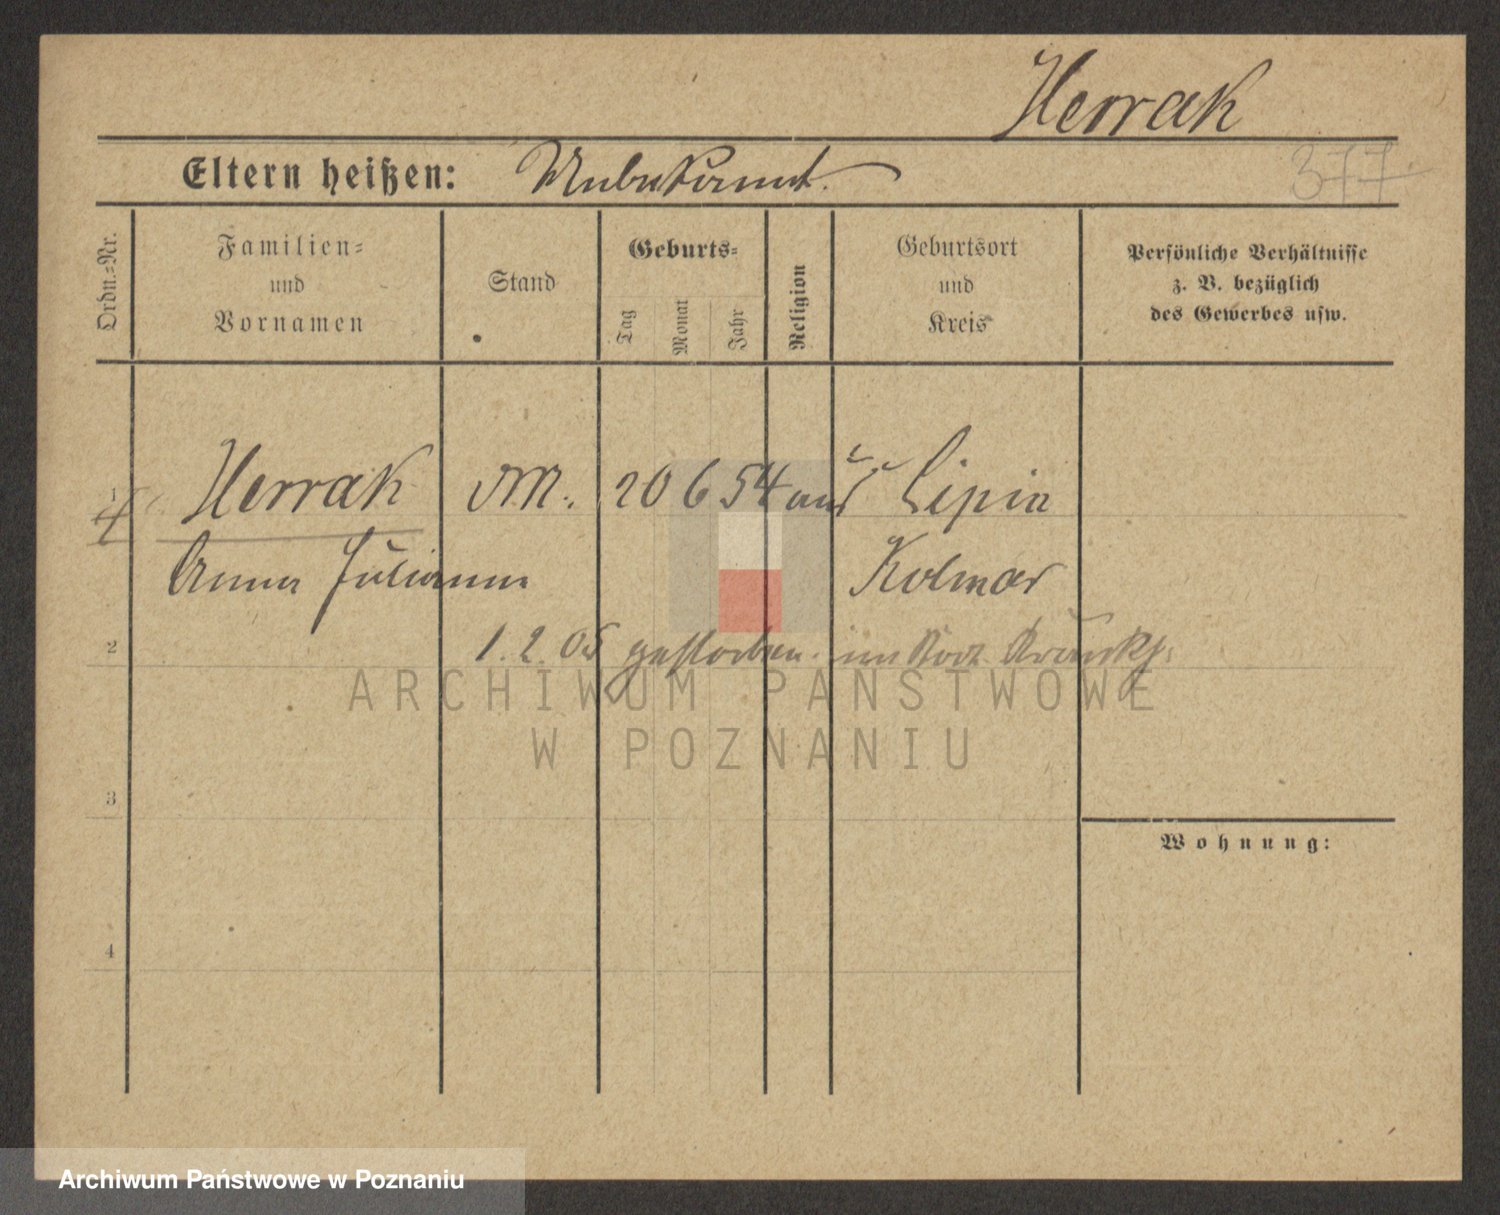 Herrak
Eltern heißen: Unbekannt.
377
Ordn.-Nr.
Familien-
und
Vornamen
Stand
Geburts-
Tag
Monat
Jahr
Religion
Geburtsort
und
Kreis
Persönliche Verhältnisse
z. B. bezüglich
des Gewerbes usw.
1
Herrak
20 6 54
Lipin
Anna Julianna
Kolmar
2
1. 2. 05 gestorben. im
ARCHIWUM PAŃSTWOWE
W POZNANIU
3
Wohnung:
4
Archiwum Państwowe w Poznaniu